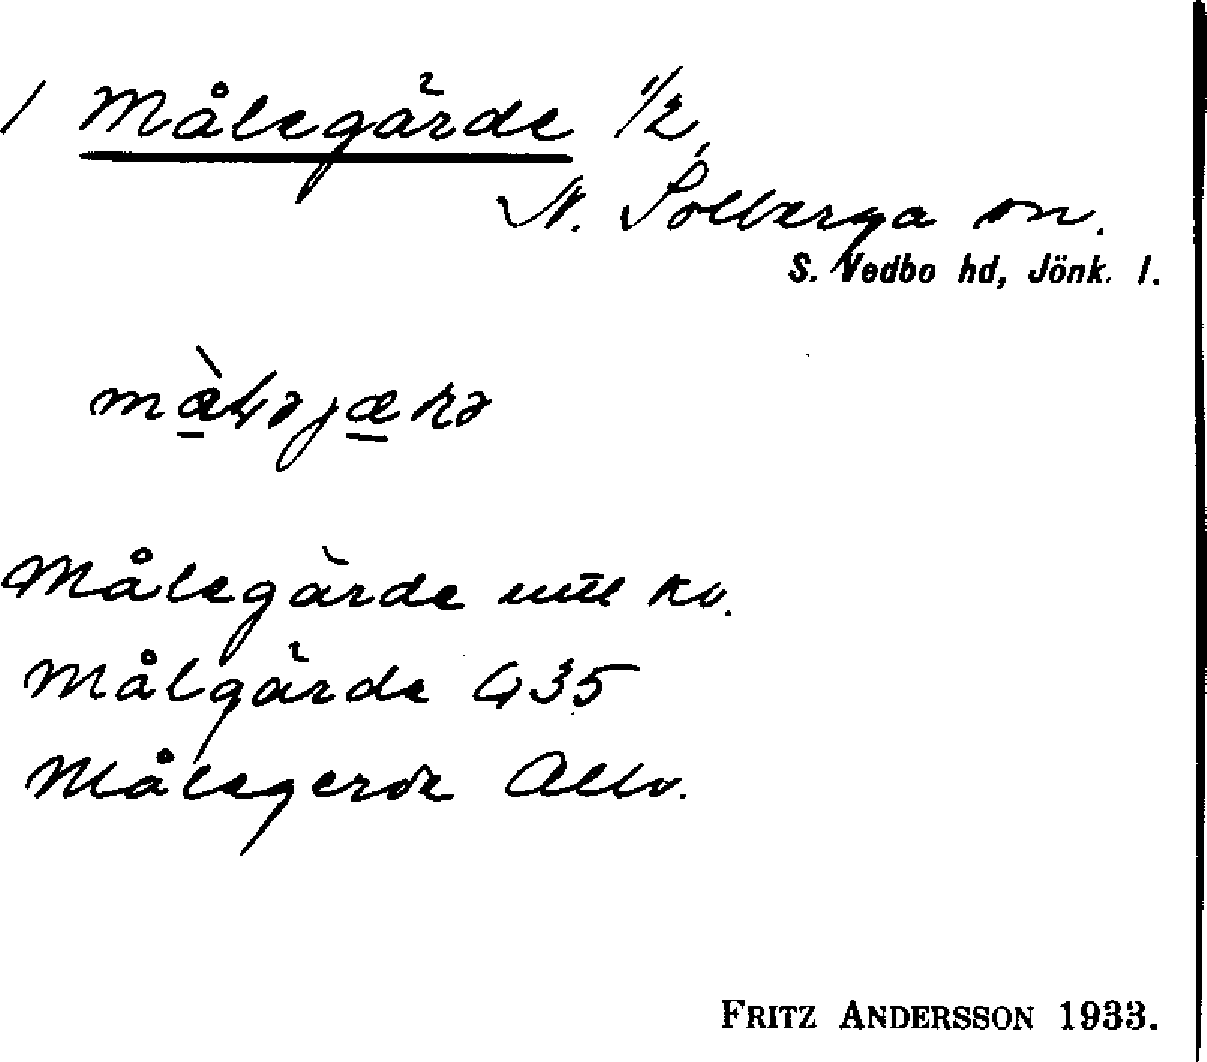 / Målegärde 1/2
N. Solberga sn.
S. Vedbo hd, Jönk. l.
màlajærə
Målegärde mtl kv.
Målgärde G35
Målegerde Allv.
FRITZ ANDERSSON 1933.